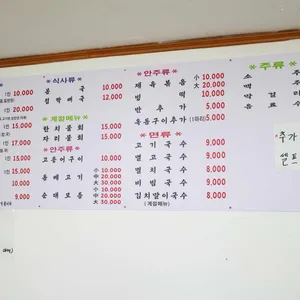 1인 10,000
10,000
1인 15,000
1인 15,000
15,000
10,000
9,000
* 식사류 *
몸국 10,000
성게미역국 12,000
* 계절메뉴 *
한치물회 15,000
자리물회 15,000
* 안주류 *
고등어구이 10,000
돔베고기 小 10,000
中 20,000
大 30,000
순대모듬 小 10,000
中 20,000
大 30,000
* 안주류 *
제육볶음 小 10,000
大 20,000
빙떡 10,000
반추가 5,000
옥돔구이추가 (1마리) 5,000
* 면류 *
고기국수 9,000
멸고국수 9,000
멸치국수 8,000
비빔국수 9,000
김치말이국수 9,000
(계절메뉴)
* 주류 *
소주
맥주
막걸리
음료
추가
셀프